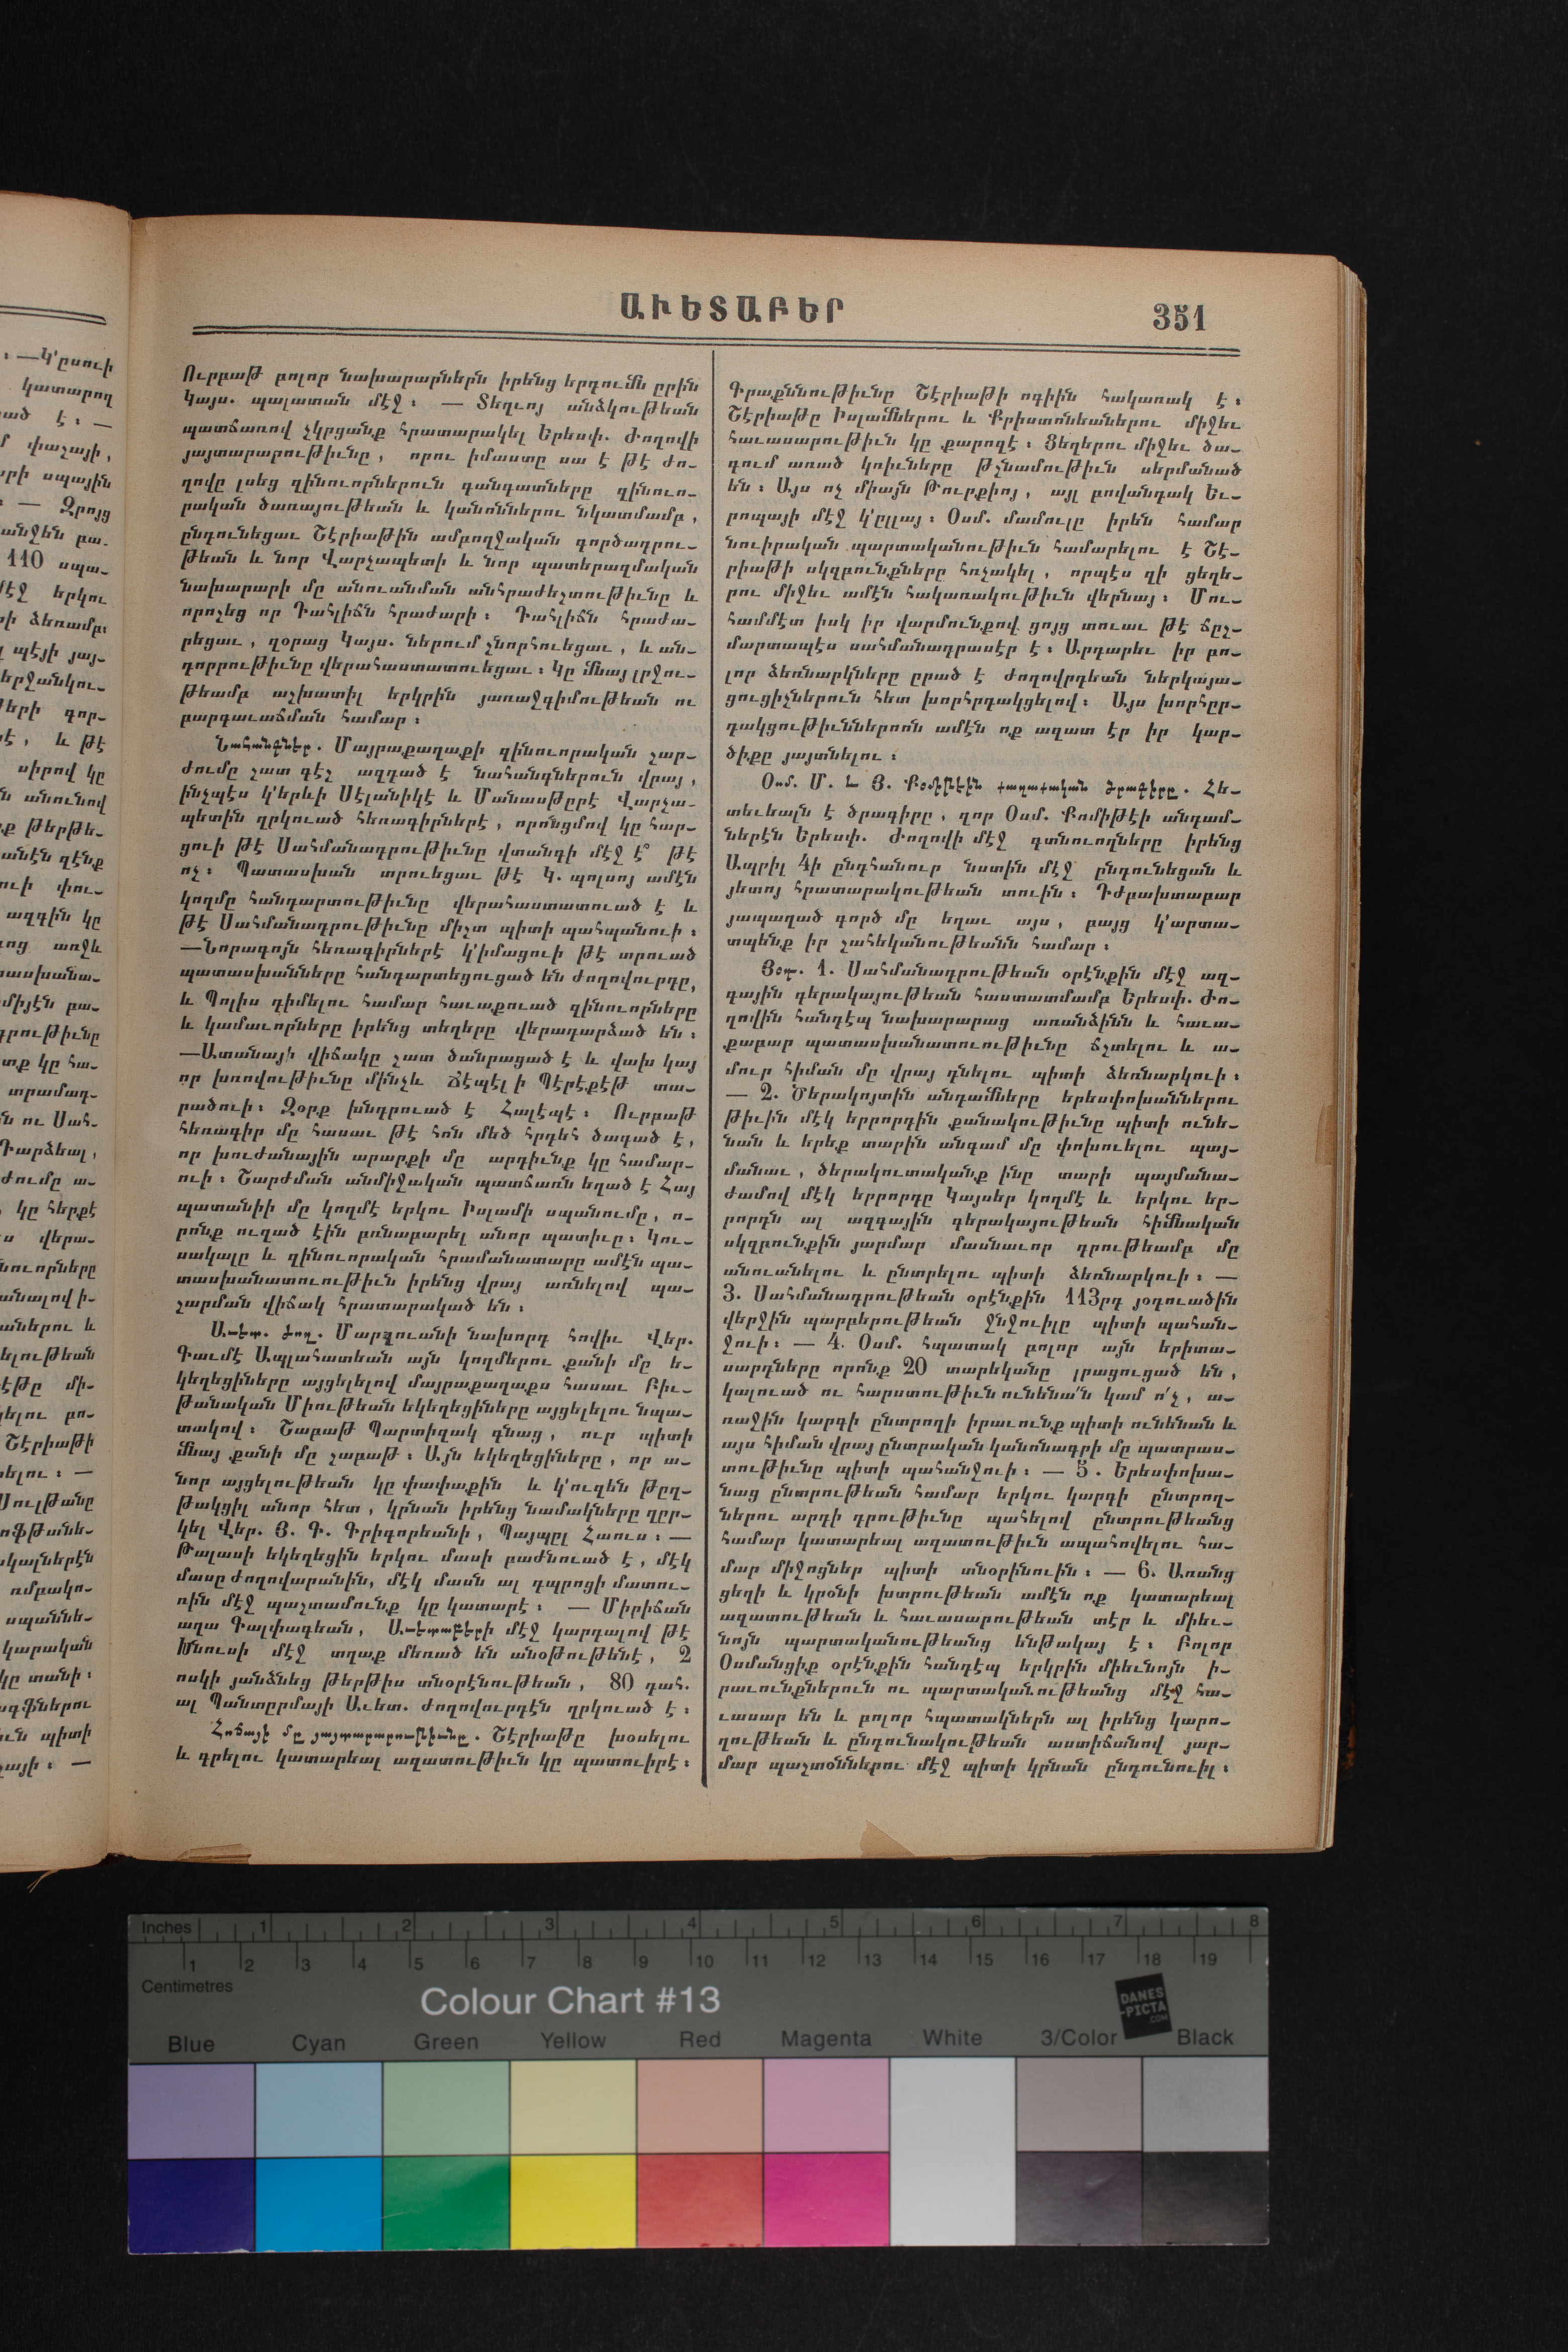 ԱՒԵՏԱԲԵՐ
351
Ուրբաթ բոլոր նախարարներն իրենց երդումն ըրին
Կայս. պալատան մէջ։ — Տեղւոյ անձկութեան
պատճառով չկրցանք հրատարակել Երեսփ. Ժողովի
յայտարարութիւնը, որու իմաստը սա է թէ Ժո–
ղովը լսեց զինուորներուն գանգատները զինուո–
րական ծառայութեան և կանոններու նկատմամբ,
ընդունեցաւ Շէրիաթին ամբողջական գործադրու–
թեան և նոր Վարչապետի և նոր պատերազմական
նախարարի մը անուանման անհրաժեշտութիւնը և
որոշեց որ Դահլիճն հրաժարի։ Դահլիճն հրաժա–
րեցաւ, զօրաց Կայս. ներում շնորհուեցաւ, և ան–
դորրութիւնը վերահաստատուեցաւ։ Կը մնայ լրջու–
թեամբ աշխատիլ երկրին յառաջդիմութեան ու
բարգաւաճման համար։
Նահանգներ. Մայրաքաղաքի զինուորական շար–
ժումը շատ գէշ ազդած է նահանգներուն վրայ,
ինչպէս կ'երևի Սէլանիկէ և Մանասթըրէ Վարչա–
պետին ղրկուած հեռագիրներէ, որոնցմով կը հար–
ցուի թէ Սահմանադրութիւնը վտանգի մէջ է՞ թէ
ոչ։ Պատասխան տրուեցաւ թէ Կ. պոլսոյ ամէն
կողմը հանդարտութիւնը վերահաստատուած է և
թէ Սահմանադրութիւնը միշտ պիտի պահպանուի։
—Նորագոյն հեռագիրներէ կ'իմացուի թէ տրուած
պատասխանները հանդարտեցուցած են ժողովուրդը,
և Պոլիս դիմելու համար հաւաքուած զինուորները
և կամաւորները իրենց տեղերը վերադարձած են։
—Ատանայի վիճակը շատ ծանրացած է և վախ կայ
որ խռովութիւնը մինչև Ճէպէլ ի Պէրէքէթ տա–
րածուի։ Զօրք խնդրուած է Հալէպէ։ Ուրբաթ
հեռագիր մը հասաւ թէ հոն մեծ հրդեհ ծագած է,
որ խուժանային արարքի մը արդիւնք կը համար–
ուի։ Շարժման անմիջական պատճառն եղած է Հայ
պատանիի մը կողմէ երկու Իսլամի սպանումը, ո–
րոնք ուզած էին բռնաբարել անոր պատիւը։ Կու–
սակալը և զինուորական հրամանատարը ամէն պա–
տասխանատուութիւն իրենց վրայ առնելով պա–
շարման վիճակ հրատարակած են։
Աւետ. ժող. Մարզուանի նախորդ հովիւ Վեր.
Գաւմէ Ապլահատեան այն կողմերու քանի մը ե–
կեղեցիները այցելելով մայրաքաղաքս հասաւ Բիւ–
թանական Միութեան եկեղեցիները այցելելու նպա–
տակով։ Շաբաթ Պարտիզակ գնաց, ուր պիտի
մնայ քանի մը շաբաթ։ Այն եկեղեցիները, որ ա–
նոր այցելութեան կը փափաքին և կ'ուզեն թըղ–
թակցիլ անոր հետ, կրնան իրենց նամակները ղըր–
կել Վեր. Յ. Գ. Գրիգորեանի, Պայպըլ Հաուս։ —
Թալասի եկեղեցին երկու մասի բաժնուած է, մէկ
մասը ժողովարանին, մէկ մասն ալ դպրոցի մատու–
ռին մէջ պաշտամունք կը կատարէ։ — Միրիճան
աղա Գալփագեան, Աւետաբերի մէջ կարդալով թէ
Խնուսի մէջ տղաք մեռած են անօթութենէ, 2
ոսկի յանձնեց թերթիս տնօրէնութեան, 80 դահ.
ալ Պանտըրմայի Աւետ. ժողովուրդէն ղրկուած է։
Հոճայի մը յայտարարութիւնը. Շէրիաթը խօսելու
և գրելու կատարեալ ազատութիւն կը պատուիրէ։
Գրաքննութիւնը Շէրիաթի ոգիին հակառակ է։
Շէրիաթը Իսլամներու և Քրիստոնեաներու միջեւ
հաւասարութիւն կը քարոզէ։ Ցեղերու միջեւ ծա–
գում առած կռիւները թշնամութիւն սերմանած
են։ Այս ոչ միայն Թուրքիոյ, այլ բովանդակ Եւ–
րոպայի մէջ կ'ըլլայ։ Օսմ. մամուլը իրեն համար
նուիրական պարտականութիւն համարելու է Շէ–
րիաթի սկզբունքները հռչակել, որպէս զի ցեղե–
րու միջեւ ամէն հակառակութիւն վերնայ։ Մու–
համմէտ իսկ իր վարմունքով ցոյց տուաւ թէ ճըշ–
մարտապէս սահմանադրասէր է։ Արդարեւ իր բո–
լոր ձեռնարկները ըրած է ժողովրդեան ներկայա–
ցուցիչներուն հետ խորհրդակցելով։ Այս խորհըր–
դակցութիւններուն ամէն ոք ազատ էր իր կար–
ծիքը յայտնելու։
Օսմ. Մ. և Յ. Քօմիթէին քաղաքական ծրագիրը. Հե–
տեւեալն է ծրագիրը, զոր Օսմ. Քոմիթէի անդամ–
ներէն Երեսփ. Ժողովի մէջ գտնուողները իրենց
Ապրիլ 4ի ընդհանուր նստին մէջ ընդունեցան և
յետոյ հրատարակութեան տուին։ Դժբախտաբար
յապաղած գործ մը եղաւ այս, բայց կ'արտա–
տպենք իր շահեկանութեանն համար։
Յօդ. 1. Սահմանադրութեան օրէնքին մէջ ազ–
գային գերակայութեան հաստատմամբ Երեսփ. Ժո–
ղովին հանդէպ նախարարաց առանձինն և հաւա–
քաբար պատասխանատուութիւնը ճշտելու և ա–
մուր հիման մը վրայ դնելու պիտի ձեռնարկուի։
— 2. Ծերակոյտին անդամները երեսփոխաններու
թիւին մէկ երրորդին քանակութիւնը պիտի ունե–
նան և երեք տարին անգամ մը փոխուելու պայ–
մանաւ, ծերակուտականք ինը տարի պայմանա–
ժամով մէկ երրորդը Կայսեր կողմէ և երկու եր–
րորդն ալ ազգային գերակայութեան հիմնական
սկզբունքին յարմար մասնաւոր դրութեամբ մը
անուանելու և ընտրելու պիտի ձեռնարկուի։ —
3. Սահմանադրութեան օրէնքին 113րդ յօդուածին
վերջին պարբերութեան ջնջուիլը պիտի պահան–
ջուի։ — 4. Օսմ. հպատակ բոլոր այն երիտա–
սարդները որոնք 20 տարեկանը լրացուցած են,
կալուած ու հարստութիւն ունենա՛ն կամ ո՛չ, ա–
ռաջին կարգի ընտրողի իրաւունք պիտի ունենան և
այս հիման վրայ ընտրական կանոնագրի մը պատրաս–
տութիւնը պիտի պահանջուի։ — 5. Երեսփոխա–
նաց ընտրութեան համար երկու կարգի ընտրող–
ներու արդի դրութիւնը պահելով ընտրութեանց
համար կատարեալ ազատութիւն ապահովելու հա–
մար միջոցներ պիտի տնօրինուին։ — 6. Առանց
ցեղի և կրօնի խտրութեան ամէն ոք կատարեալ
ազատութեան և հաւասարութեան տէր և միեւ–
նոյն պարտականութեանց ենթակայ է։ Բոլոր
Օսմանցիք օրէնքին հանդէպ երկրին միեւնոյն ի–
րաւունքներուն ու պարտականութեանց մէջ հա–
ւասար են և բոլոր հպատակներն ալ իրենց կարո–
ղութեան և ընդունակութեան աստիճանով յար–
մար պաշտօններու մէջ պիտի կրնան ընդունուիլ։
Inches 1 2 3 4 5 6 7 8
1 2 3 4 5 6 7 8 9 10 11 12 13 14 15 16 17 18 19
Centimetres
Colour Chart #13
DANES
-PICTA
.COM
Blue Cyan Green Yellow Red Magenta White 3/Color Black